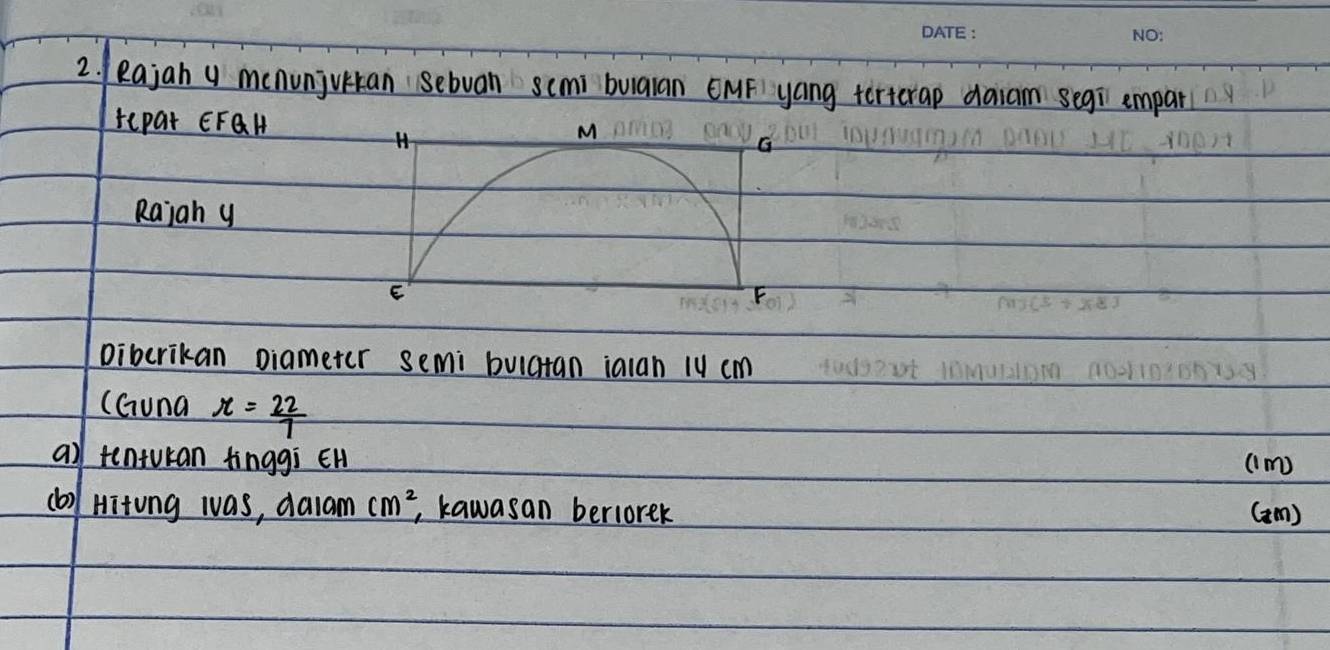 DATE: NO:
2. Rajah 4 menunjukkan sebuah semi bulatan EMF yang terterap dalam segi empat
tepat EFGH
H M G
Rajah 4
E F
Diberikan Diameter semi bulatan ialah 14 cm
(Guna π = 22/7
a) tentukan tinggi EH (1m)
(b) Hitung luas, dalam cm², kawasan berlorek (2m)